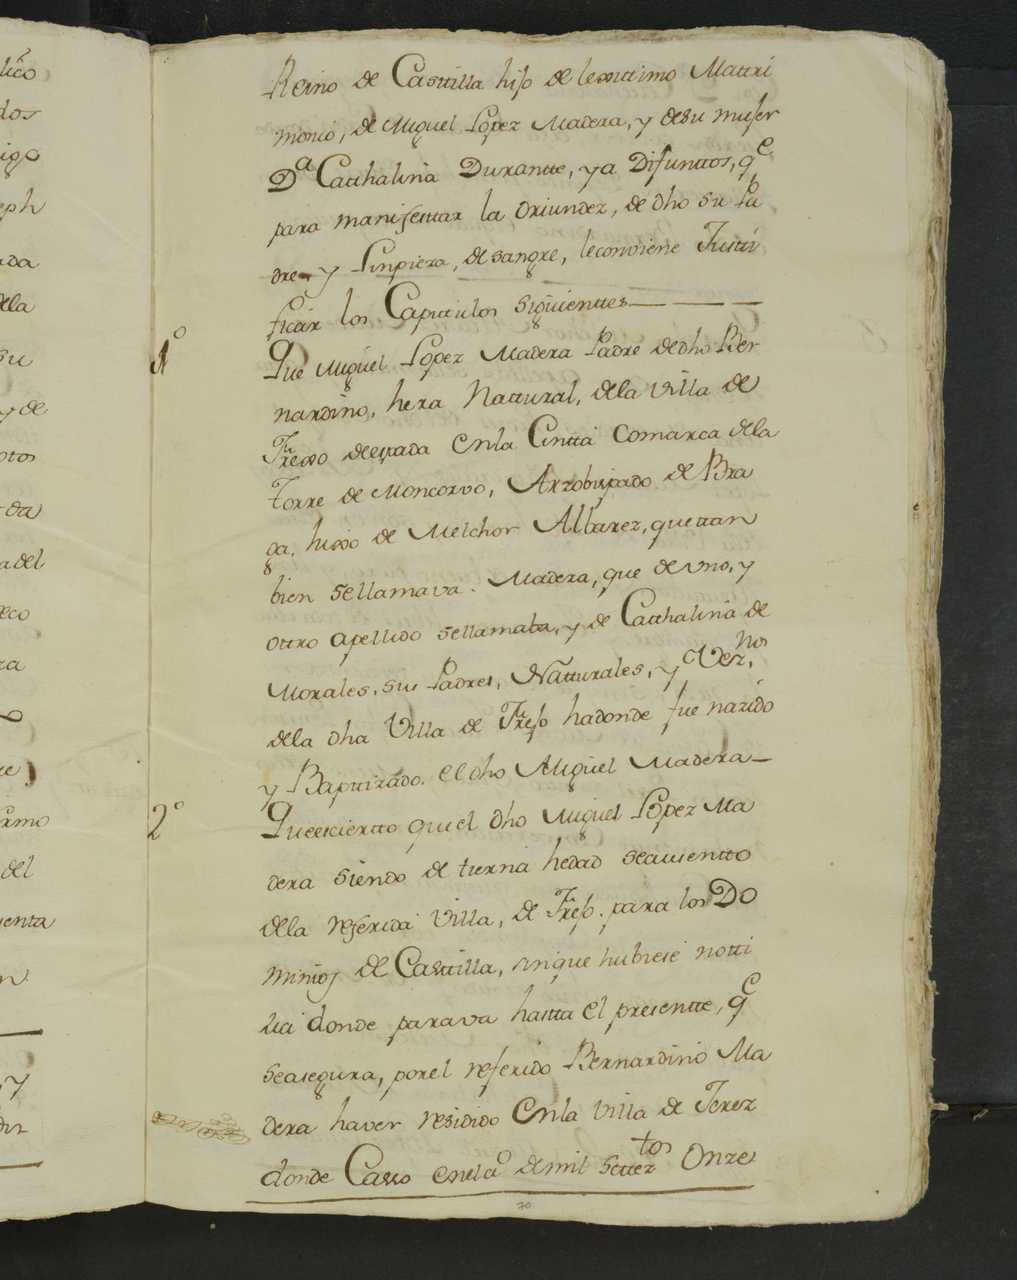 lico
dos
igo
eph
ada
dela
su
y de
otos
da
adel
eco
ra
rmo
del
uenta
n
y
Reino de Casttilla hijo de lexittimo Mattri
monio, de Miguel Lopez Madera, y desu mujer
Dª Catthalina Durantte, ya Difunttos, qᵉ
para manifesttar la oriundez, de dho su Pa
dre y Linpieza, de sangre, leconviene Justti
ficar los Capittulos siguienttes
1º Que Miguel Lopez Madera Padre dedho Ber
nardino, hera Nattural, dela villa de
deespada Enla Cintta Comarca dela
Torre de Moncorvo, Arzobispado de Bra
ga, hixo de Melchor Albarez, quettan
bien sellamava Madera, que de uno, y
ottro apellido sellamaba, y de Catthalina de
Morales, sus Padres, Natturales, y Vezⁿᵒˢ
dela dha Villa de hadonde fue nazido
y Bapttizado el dho Miguel Madera
2º Queesciertto quel dho Miguel Lopez Ma
dera siendo de tierna hedad seausentto
dela referida villa, de para los Do
minios de Casttilla, sinque hubiese notti
zia donde parava hastta el presentte, qᵉ
seasegura, porel referido Bernardino Ma
dera haver residido Enla villa de Jerez
donde Casso enelaº demil settezᵗᵒˢ Onze
70